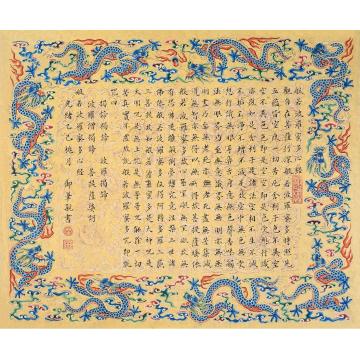 般若波羅蜜多心經
觀自在菩薩行深般若波羅蜜多時照見
五蘊皆空度一切苦厄舍利子色不異空
空不異色色即是空空即是色受想行識
亦復如是舍利子是諸法空相不生不滅
不垢不淨不增不減是故空中無色無受
想行識無眼耳鼻舌身意無色聲香味觸
法無眼界乃至無意識界無無明亦無無
明盡乃至無老死亦無老死盡無苦集滅
道無智亦無得以無所得故菩提薩埵依
般若波羅蜜多故心無罣礙無罣礙故無
有恐怖遠離顛倒夢想究竟涅槃三世諸
佛依般若波羅蜜多故得阿耨多羅三藐
三菩提故知般若波羅蜜多是大神咒是
大明咒是無上咒是無等等咒能除一切
苦真實不虛故說般若波羅蜜多咒即說
咒曰
揭諦揭諦 波羅揭諦
波羅僧揭諦 菩提薩婆訶
般若波羅蜜多心經
光緒 桃月 御筆親書